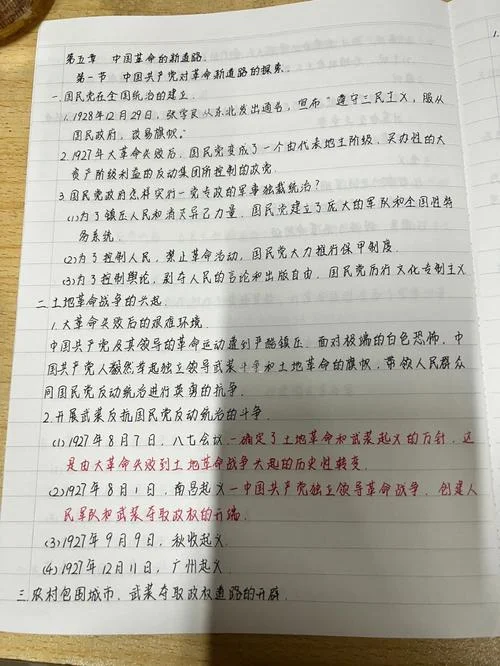 第五章 中国革命的新道路.
第一节 中国共产党对革命新道路的探索.
一.国民党在全国统治的建立.
1.1928年12月29日,张学良从东北发出通电,宣布"遵守三民主义,服从
国民政府,改易旗帜".
2.1927年大革命失败后,国民党变成了一个由代表地主阶级、买办性的大
资产阶级利益的反动集团所控制的政党.
3.国民党政府怎样实行一党专政的军事独裁统治?
(1)为了镇压人民和消灭异己力量,国民党建立了庞大的军队和全国性特
务系统.
(2)为了控制人民,禁止革命活动,国民党大力推行保甲制度.
(3)为了控制舆论,剥夺人民的言论和出版自由,国民党厉行文化专制主义
二.土地革命战争的兴起.
1.大革命失败后的艰难环境.
中国共产党及其领导的革命运动遭到严酷镇压.面对极端的白色恐怖,中
国共产党人毅然举起独立领导武装斗争和土地革命的旗帜,带领人民群众
向国民党反动统治进行英勇的抗争.
2.开展武装反抗国民党反动统治的斗争.
(1)1927年8月7日,八七会议—确定了土地革命和武装起义的方针,这
是由大革命失败到土地革命战争兴起的历史性转变.
(2)1927年8月1日,南昌起义—中国共产党独立领导革命战争、创建人
民军队和武装夺取政权的开端.
(3)1927年9月9日,秋收起义.
(4)1927年12月11日,广州起义.
三.农村包围城市、武装夺取政权道路的开辟.
1.